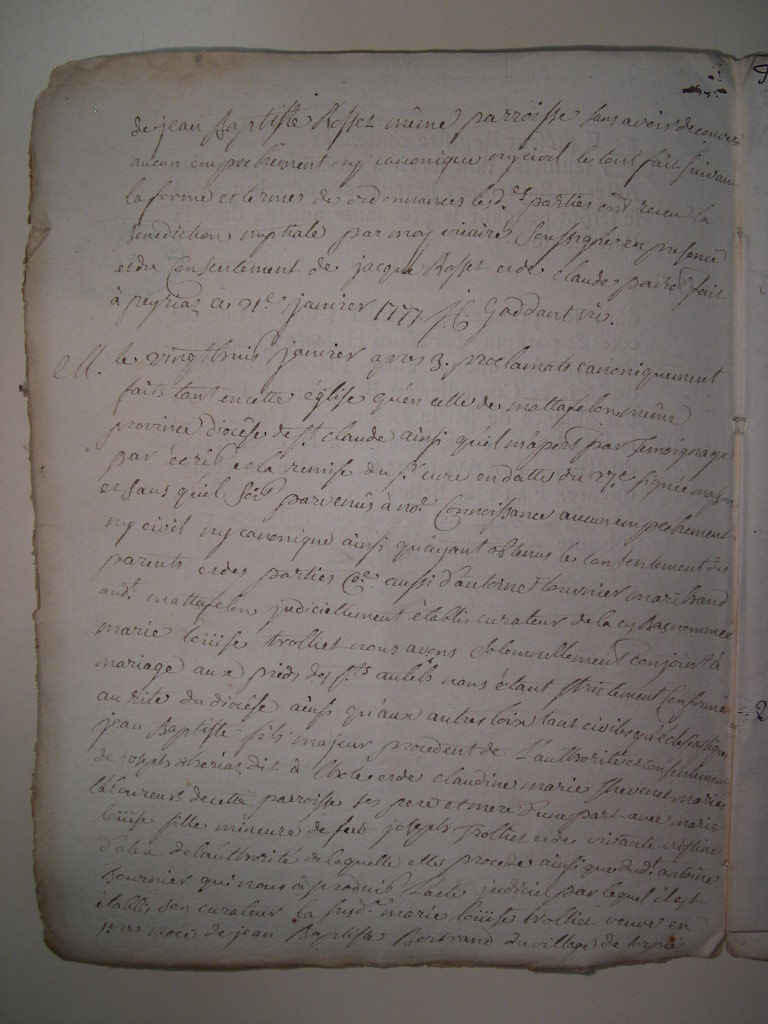 de jean Baptiste Rosset même parroisse sans avoir decouvert
aucun empechement ny canonique ny civil le tout fait suivant
la forme et termes des ordonnances lesd.es parties ont receu la
benediction nuptiale par moy vicaire soussigné en presence
et du consentement de jacque Rosset et de claude fait
à peyriat ce 21.e janvier 1777 j. C. Gaddant vic.
M. le vingt huit janvier apres 3. proclamats canoniquement
faits tant en cette église qu'en celle de mattafelon même
province diocèse de s.t claude ainsi qu'il m'apert par temoignage
par écrit et la remise du s.r curé en datte du 27.e signée
et sans qu'il soit parvenus à no.e connoissance aucun empechement
ny civil ny canonique ainsi qu'ayant obtenus le consentement des
parents et des parties aussi d'antoine tournier marchand
aud.t mattafelon judiciellement établis curateur de la cy bas nommée
marie loüise trolliet nous avons solemnellement conjoint à
mariage aux pieds des s.ts autels nous etant strictement conformé
au rite du diocèse ainsi qu'aux autres loix tant civiles qu'éclesiastiques
jean Baptiste fils majeur procedent de l'authorité et consentement
de joseph dit à l'hote et de claudine marie thevenet mariés
laboureurs de cette parroisse ses pere et mere d'une part avec marie
loüise fille mineure de feu joseph trolliet et de vivante
de l'authorité de laquelle elle procede ainsi que dud.t antoine
tournier qui nous à produit l'acte judiciel par lequel il est
établis son curateur la susd.e marie loüise trolliet veuve en
1.ere noce de jean Baptiste Bertrand du village de